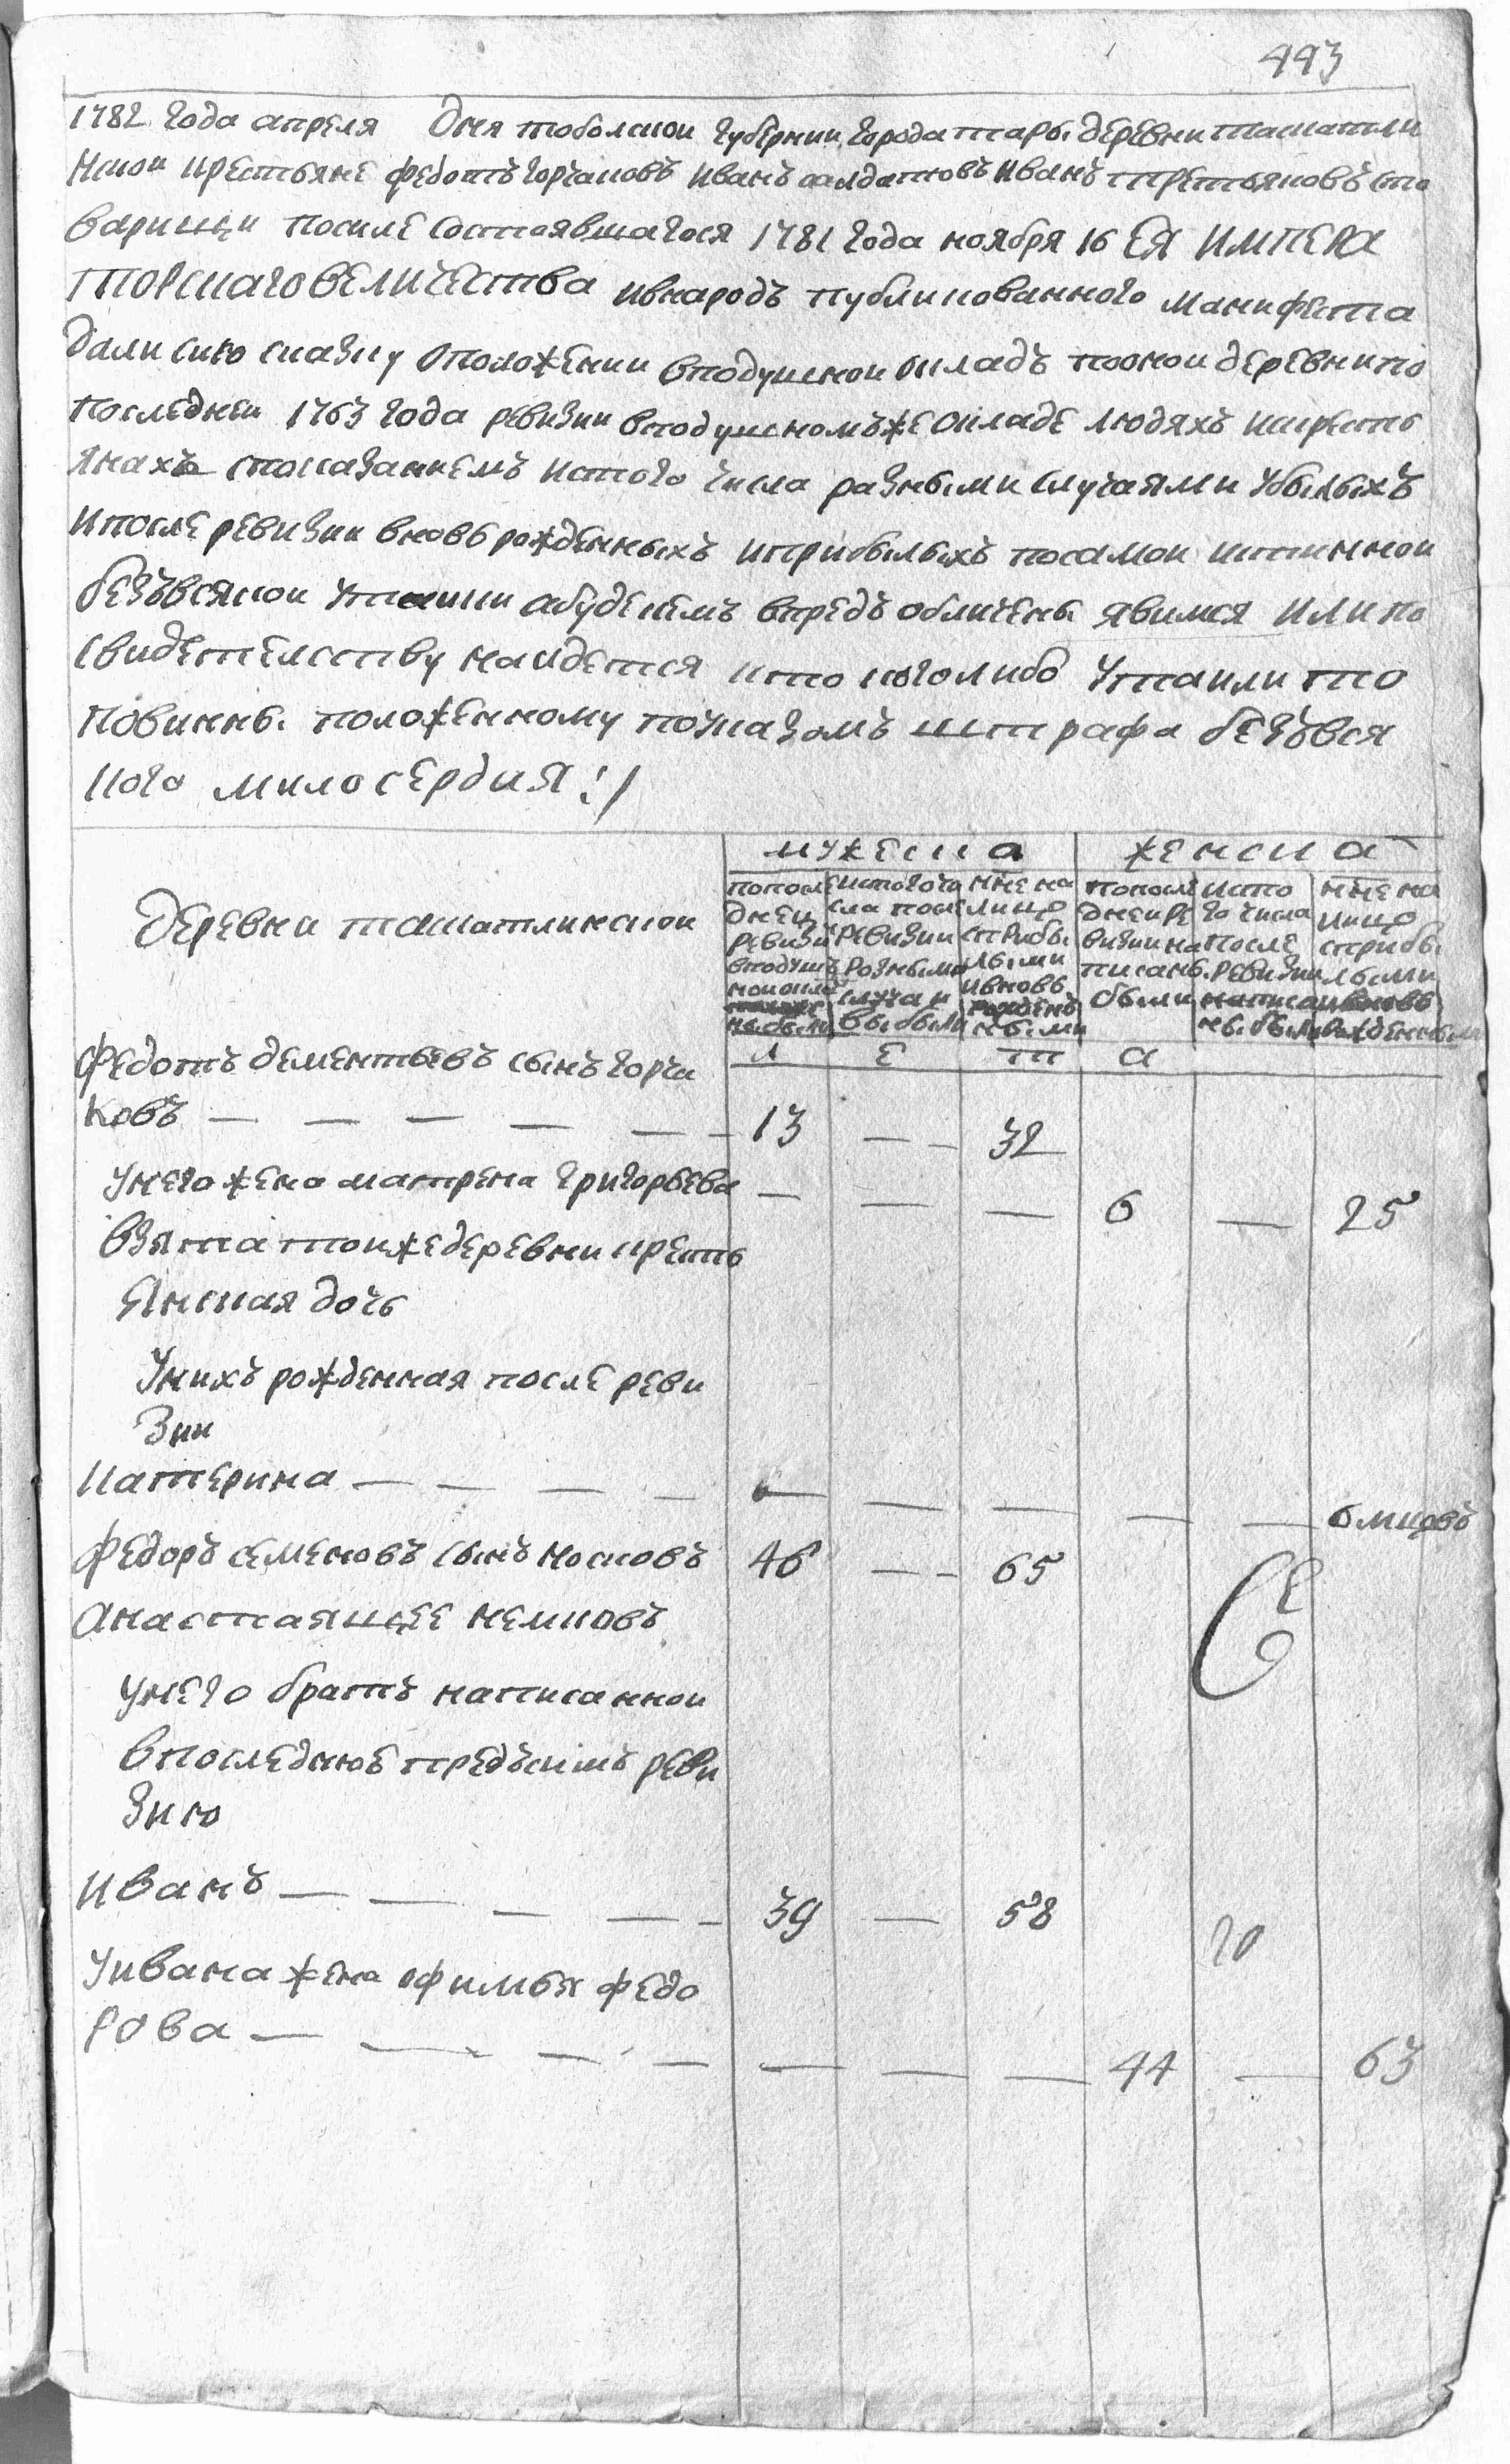 443
1782 года апреля дня тоболской губернии города тары деревни ташатлин
ской крестьяне федотъ горчаковъ иванъ салдатовъ иванъ третьяковъ сто
варищи посиле состоявшагося 1781 года ноября 16 ЕЯ ИМПЕРА
ТОРСКАГО ВЕЛИЧЕСТВА ивнародъ публикованного манифеста
дали сию скаску оположении вподушной окладъ пооной деревни по
последней 1763 года ревизии вподушномъже окладе людяхъ икресть
янахъ споказаниемъ истого числа разными случаями убылыхъ
ипосле ревизии вновь рожденныхъ иприбылыхъ посамой истинной
безъвсякой утайки абуде чемъ впредь обличены явимся или по
свидетельству найдется что кого либо утаили то
повинны положенному поуказомъ штрафа безъвся
кого милосердия :/
деревни ташатлинской
мужеска
женска
попосле
дней
ревизи
вподуш
ной окла

ны были
истогочи
сла после
ревизии
разными
случаи
выбыли
ныне на
лицо
сприбы
лыми
ивновь
рожден
ными
попосле
дней ре
визии на
писаны
были
исто
го числа
после
ревизии
ныне на
лицо
сприбы
лыми
ивновь
рожденными
л е т а
федотъ дементьевъ сынъ горча
ковъ — — — — — 13 — — 32
унего жена матрена григорьева — — — 6 — 25
взята тойже деревни кресть
янская дочь
унихъ рожденная после реви
зии
катерина — — — — — — — — — 6 мцовъ
федоръ семеновъ сынъ носковъ 46 — — 65
анастаящее
унего братъ написанной
впоследнюе предъсимъ реви
зию
иванъ — — — — — 39 — 58
уивана жена офимья федо
рова — — — — — — — 44 — 63